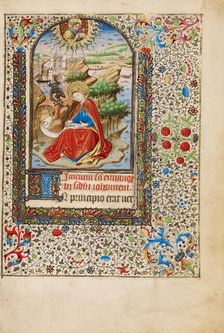 Inicium sci euvange
lii scdm iohannem
In principio erat ver